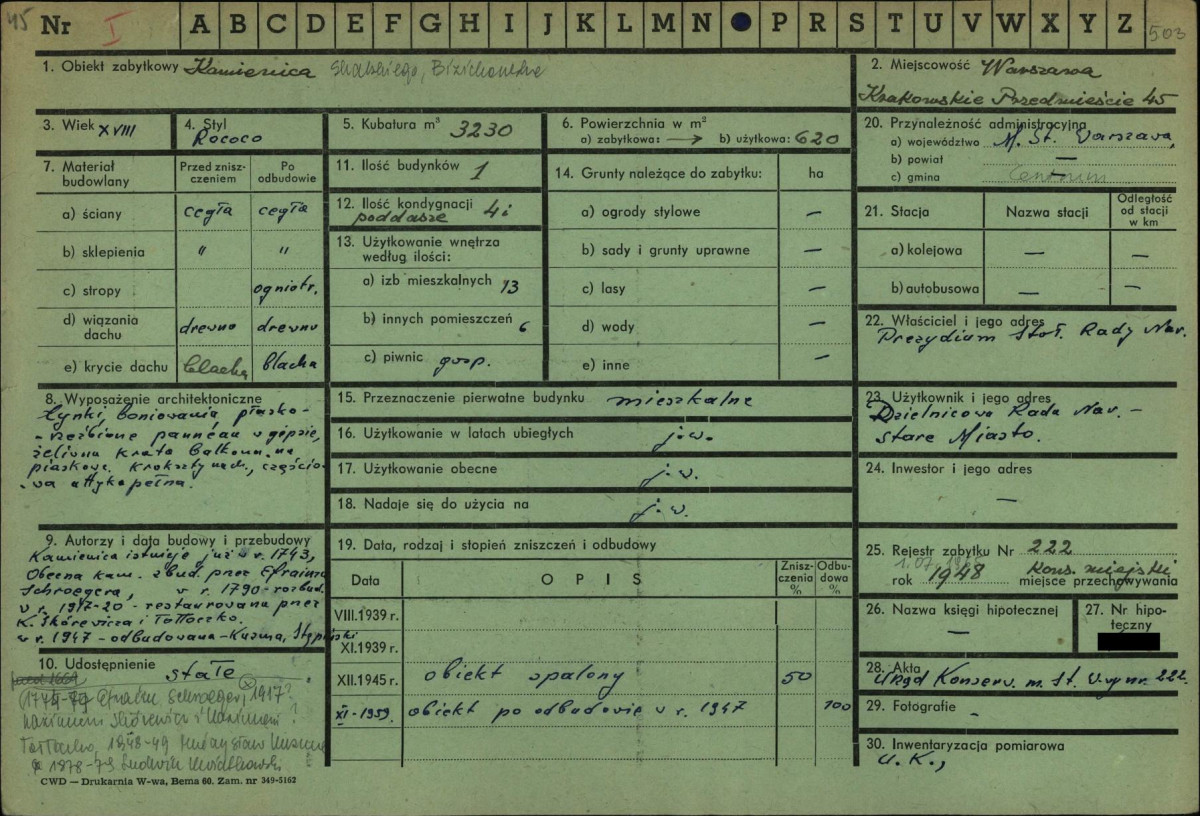 45 Nr I A B C D E F G H I J K L M N P R S T U V W X Y Z 503
1. Obiekt zabytkowy Kamienica
2. Miejscowość Warszawa
Krakowskie Przedmieście 45
3. Wiek XVIII
4. Styl
Rococo
5. Kubatura m³ 3230
6. Powierzchnia w m²
a) zabytkowa: → b) użytkowa: 620
20. Przynależność administracyjna
a) województwo M. St. Warszawa,
b) powiat —
c) gmina Centrum
7. Materiał budowlany
Przed znisz-
czeniem
Po
odbudowie
a) ściany cegła cegła
b) sklepienia " "
c) stropy ogniotr.
d) wiązania
dachu drewno drewno
e) krycie dachu blacha blacha
11. Ilość budynków 1
12. Ilość kondygnacji 4 i
poddasze
13. Użytkowanie wnętrza
według ilości:
a) izb mieszkalnych 13
b) innych pomieszczeń 6
c) piwnic gosp.
14. Grunty należące do zabytku: ha
a) ogrody stylowe —
b) sady i grunty uprawne —
c) lasy —
d) wody —
e) inne —
21. Stacja Nazwa stacji Odległość
od stacji
w km
a) kolejowa — —
b) autobusowa — —
22. Właściciel i jego adres
Prezydium Stoł. Rady Nar.
8. Wyposażenie architektoniczne
Tynki, boniowania płasko-
-rzeźbione panneau w gipsie,
żeliwna krata balkonu na
piaskow. kroksztynach, częścio-
wa attyka pełna.
15. Przeznaczenie pierwotne budynku mieszkalne
16. Użytkowanie w latach ubiegłych j.w.
17. Użytkowanie obecne j.w.
18. Nadaje się do użycia na j.w.
23. Użytkownik i jego adres
Dzielnicowa Rada Nar. –
Stare Miasto.
24. Inwestor i jego adres
—
9. Autorzy i data budowy i przebudowy
Kamienica istnieje już w r. 1743,
Obecna kam. zbud. przez Efraima
Schroegera, w r. 1790 - rozbud.
w r. 1917-20 - restaurowana przez
K. Skórewicza i Tołłoczko.
w r. 1947 - odbudowana - Kuzma, Stępiński
19. Data, rodzaj i stopień zniszczeń i odbudowy
Data OPIS Znisz-
czenia
%
Odbu-
dowa
%
VIII.1939 r.
XI.1939 r.
XII.1945 r. obiekt spalony 50
XI-1959. obiekt po odbudowie w r. 1947 100
25. Rejestr zabytku Nr 222
rok 1948 Kons. miejski
miejsce przechowywania
26. Nazwa księgi hipotecznej
—
27. Nr hipo-
teczny
28. Akta
Urząd Konserw. m. St. W-wy nr. 222.
29. Fotografie –
30. Inwentaryzacja pomiarowa
U.K.,
10. Udostępnienie stałe
Efraim Schroeger, 1917?
Kazimierz Skórewicz i Kazimierz
Tołłoczko, 1948-49 Mieczysław Kuzma
1878-79 Ludwik
CWD — Drukarnia W-wa, Bema 60. Zam. nr 349-5162